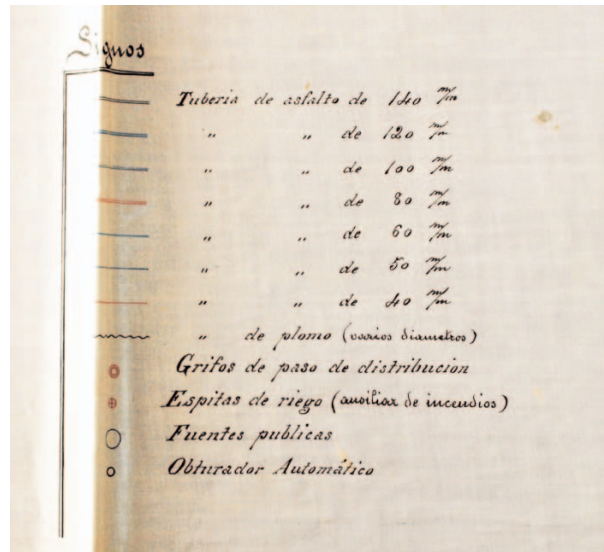 Signos
Tuberia de asfalto de 140 m/m
" " de 120 m/m
" " de 100 m/m
" " de 80 m/m
" " de 60 m/m
" " de 50 m/m
" " de 40 m/m
" de plomo (varios diametros)
Grifos de paso de distribucion
Espitas de riego (auxiliar de incendios)
Fuentes publicas
Obturador Automático